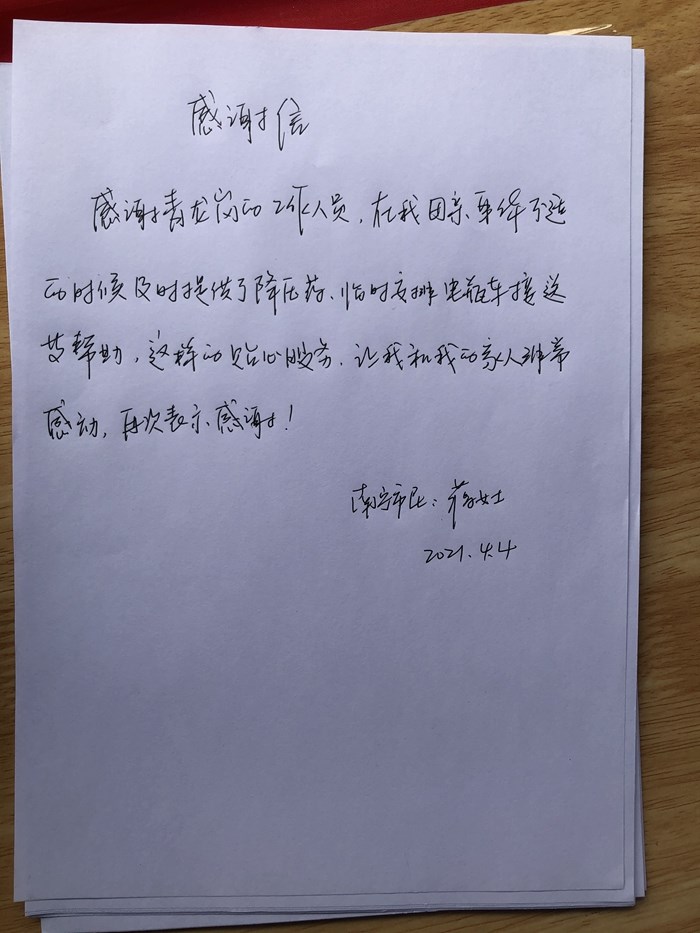 感谢信
感谢青龙岗的工作人员，在我母亲身体不适
的时候及时提供了降压药、临时安排电瓶车接送
等帮助，这样的贴心服务，让我和我的家人非常
感动，再次表示感谢！
南宁市民：蒋女士
2021.4.4